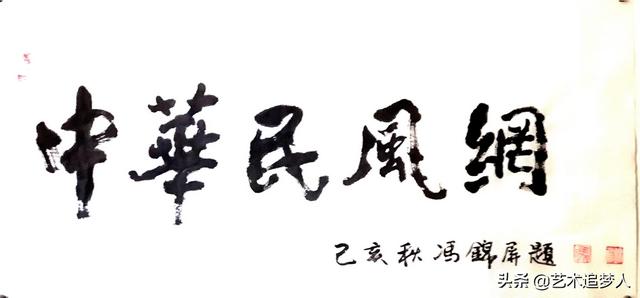 中華民風網
己亥秋 馮錦屏題
头条 @艺术追梦人